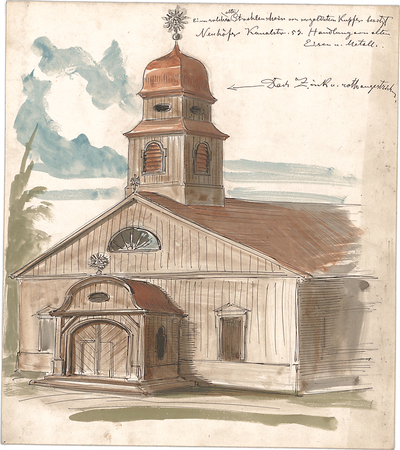 ein solches Strahlenkreuz in vergoldeten Kupfer besitzt
alte
Neuhöfer Kanalstr. 53. Handlung von alten
Eisen u. Metall.
Dach Zink u. roth angestrichen